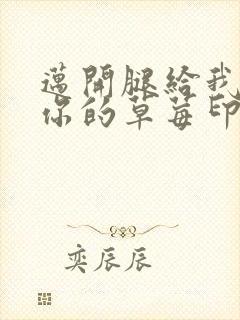 邁開腿給我
你的草莓印
奕辰辰